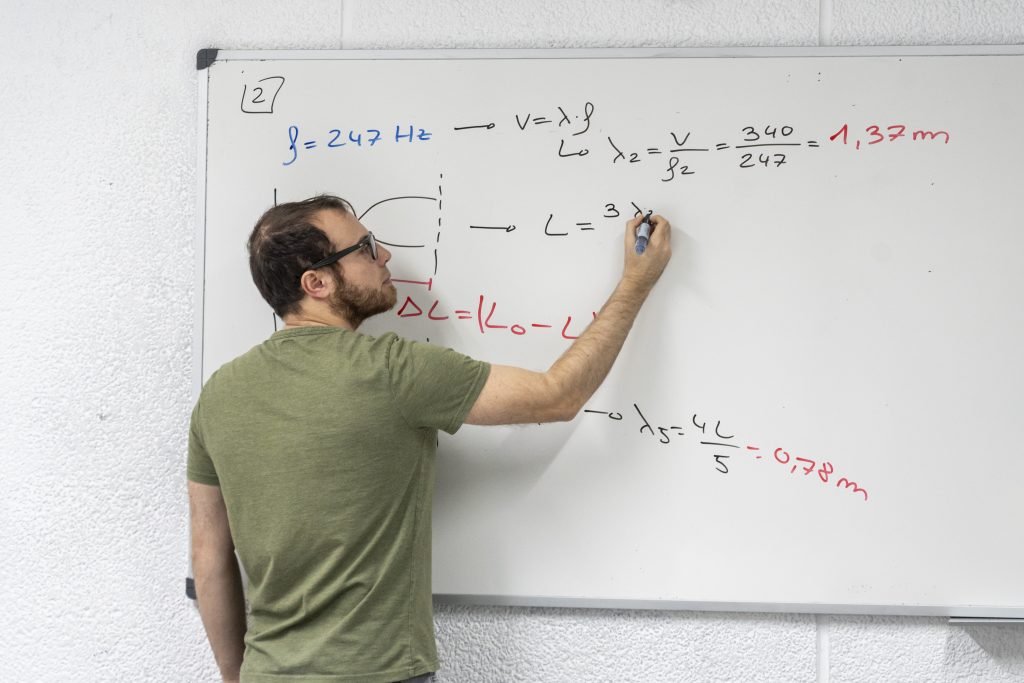 2
f = 247 Hz → v = λ·f
↳ λ₂ = v/f₂ = 340/247 = 1,37 m
→ L = 3 λ
ΔL = |L₀ - L
→ λ₅ = 4L/5 = 0,78 m